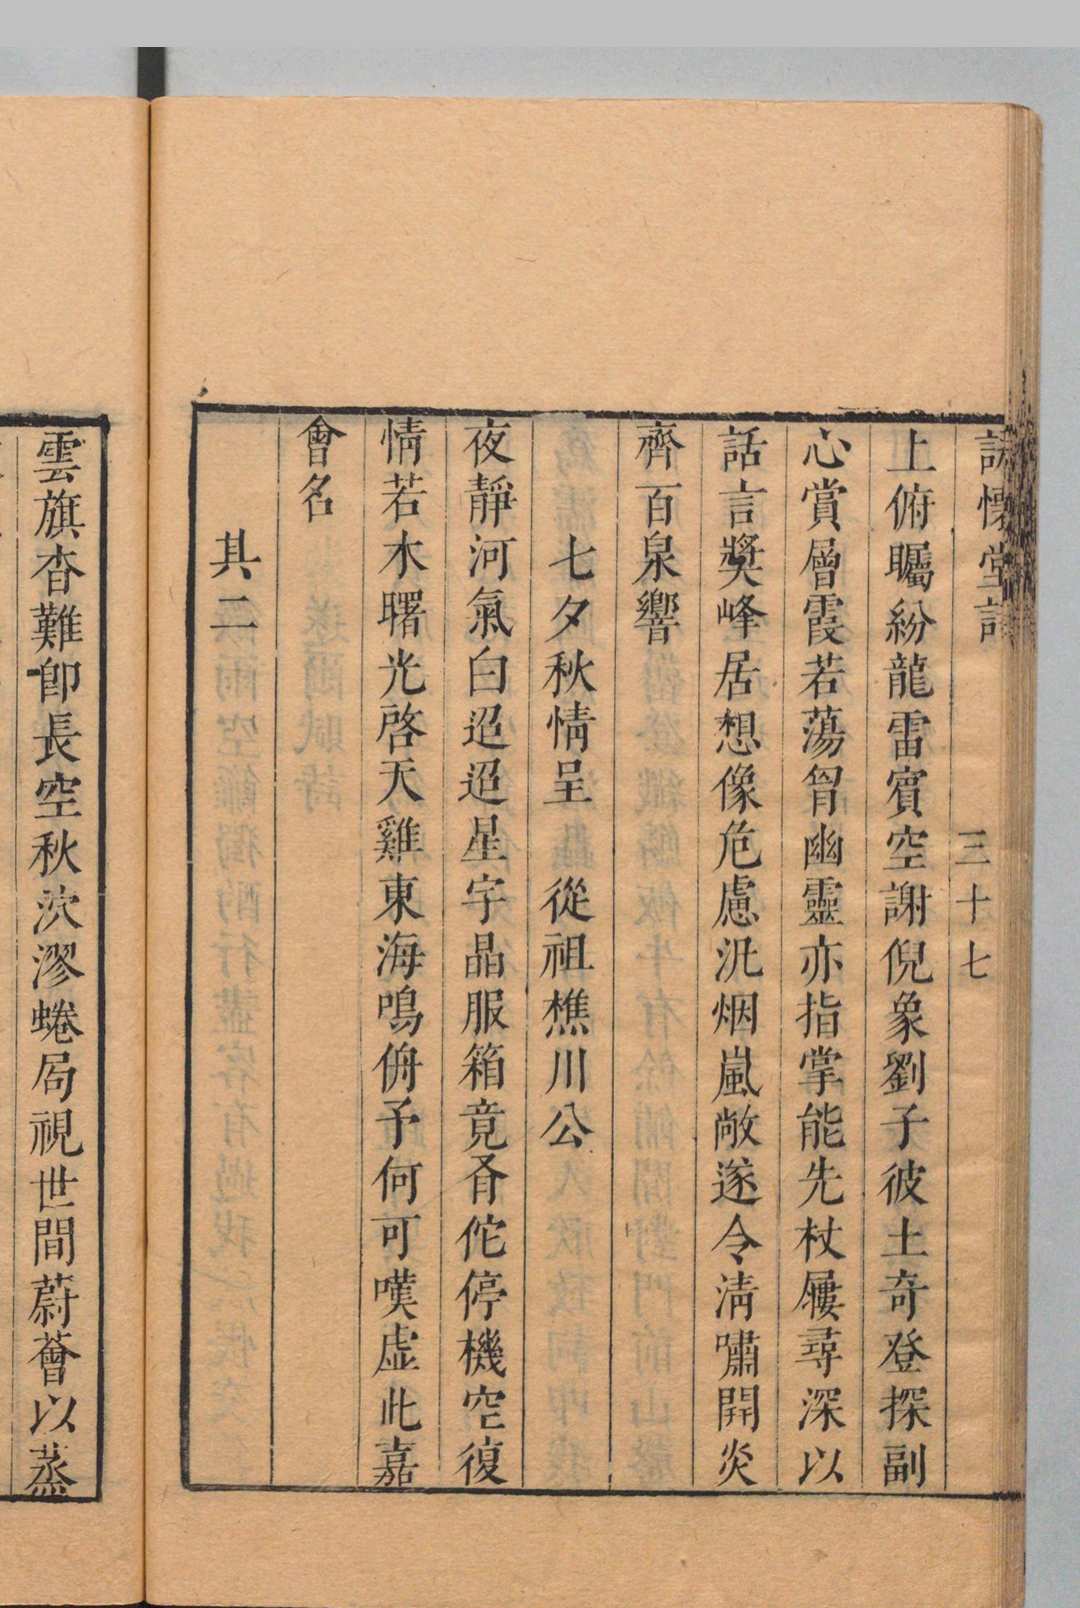 詠懷堂詩
三十七
上俯矚紛龍雷賓空謝倪象劉子彼土奇登探副
心賞層霞若蕩胷幽靈亦指掌能先杖屨尋深以
話言獎峰居想像危慮汎烟嵐敞遂令淸嘯開炎
齊百泉響
七夕秋情呈　從祖樵川公
夜靜河氣白迢迢星宇晶服箱竟胥佗停機空復
情若木曙光啓天雞東海鳴俯予何可嘆虛此嘉
會名
其二
雲旗杳難卽長空秋泬漻蜷局視世間蔚薈以蒸